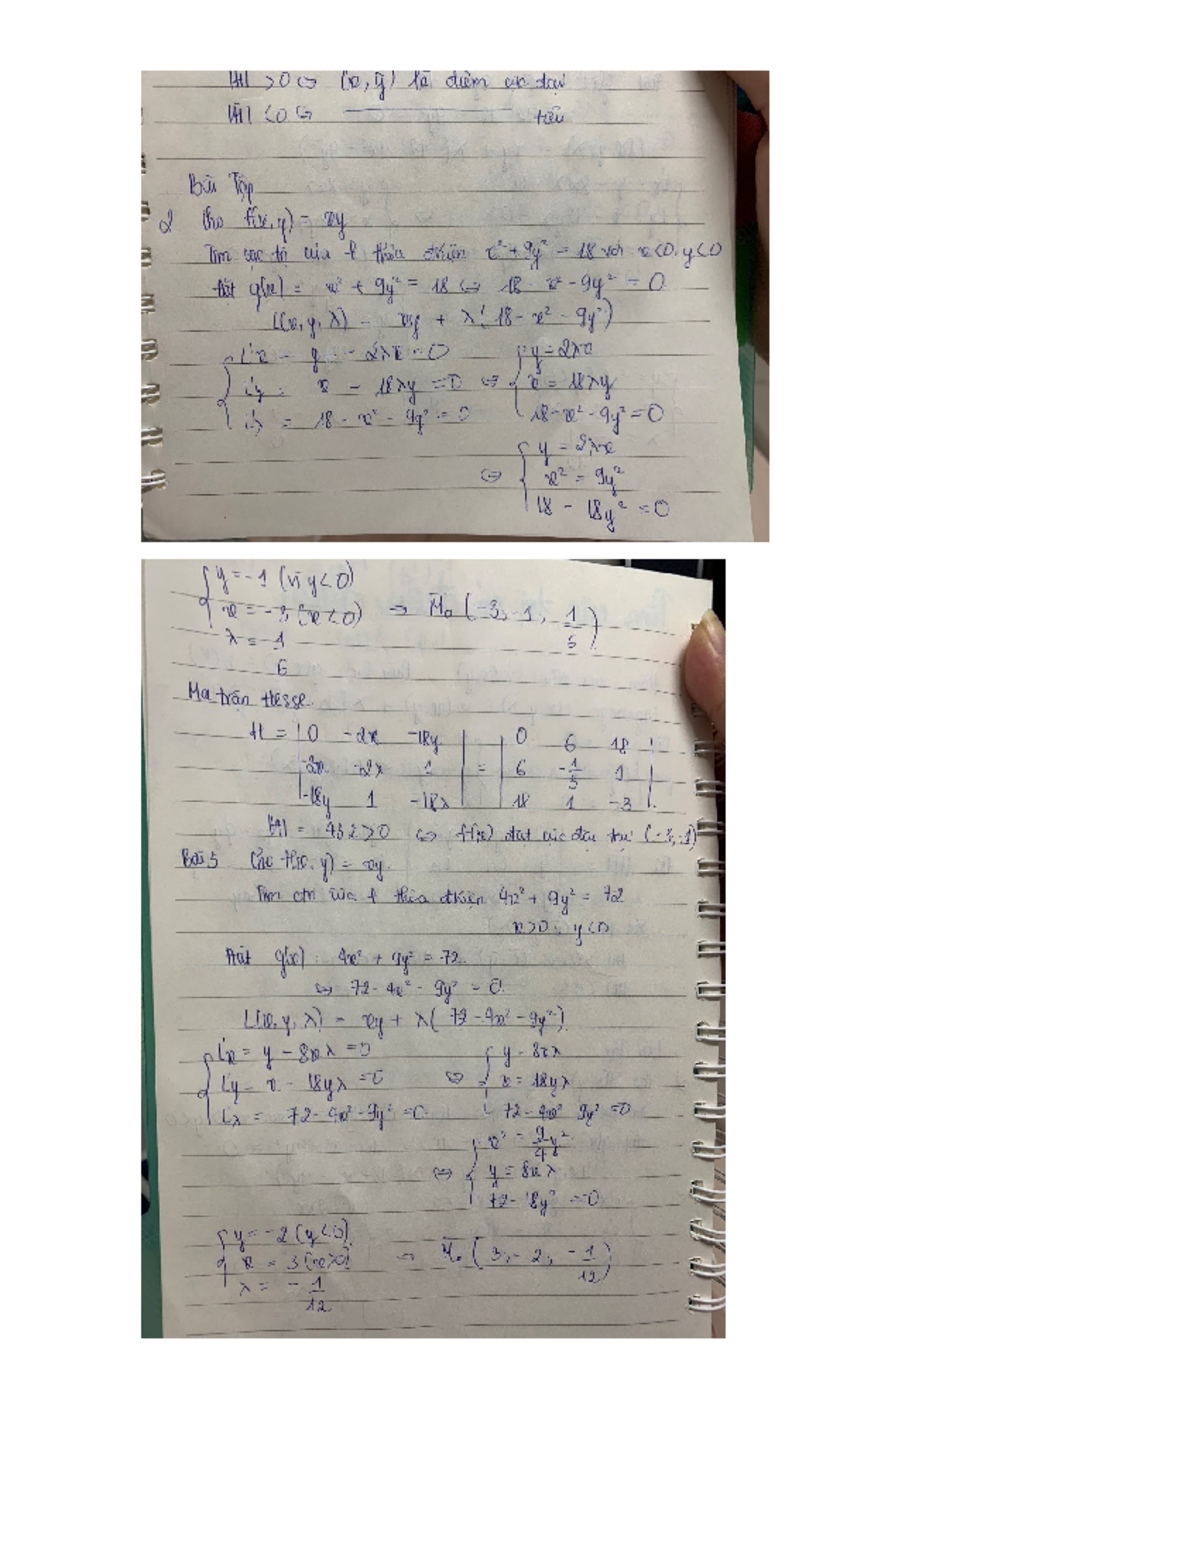 |H| >0 ⇔ (x, y) là điểm cực đại
|H| <0 ⇔ ——— tiểu
Bài Tập
2 Cho f(x, y) = xy
Tìm cực trị của f thỏa đkiện x² + 9y² = 18 với x<0, y<0
Đặt g(x) = x² + 9y² = 18 ⇔ 18 - x² - 9y² = 0
L(x, y, λ) = xy + λ(18 - x² - 9y²)
{ L'x = y - 2λx = 0 { y = 2λx
L'y = x - 18λy = 0 ⇔ x = 18λy
L'λ = 18 - x² - 9y² = 0 18 - x² - 9y² = 0
{ y = 2λx
⇔ x² = 9y²
18 - 18y² = 0
{ y = -1 (vì y<0)
x = -3 (x<0) → M₀ (-3, -1, 1/6)
λ = -1/6
Ma trận Hesse
H = | 0 -2x -18y | | 0 6 18 |
| -2x -2λ 1 | = | 6 -1/3 1 |
| -18y 1 -18λ | | 18 1 -3 |
|H| = 432 >0 ⇔ f(x) đạt cực đại tại (-3, -1)
Bài 5 Cho f(x, y) = xy.
Tìm ctrị của f thỏa đkiện 4x² + 9y² = 72
x>0, y<0
Đặt g(x): 4x² + 9y² = 72
⇔ 72 - 4x² - 9y² = 0
L(x, y, λ) = xy + λ( 72 - 4x² - 9y²)
{ L'x = y - 8xλ = 0 { y = 8xλ
L'y = x - 18yλ = 0 ⇔ x = 18yλ
L'λ = 72 - 4x² - 9y² = 0 72 - 4x² 9y² = 0
{ x² = 9/4 y²
⇔ y = 8xλ
72 - 18y² = 0
{ y = -2 (y<0)
x = 3 (x>0) → M₀ ( 3, -2, -1/12)
λ = -1/12